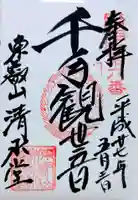 奉拝
平成廿七年
五月二日
千手観世音
東叡山 清水堂